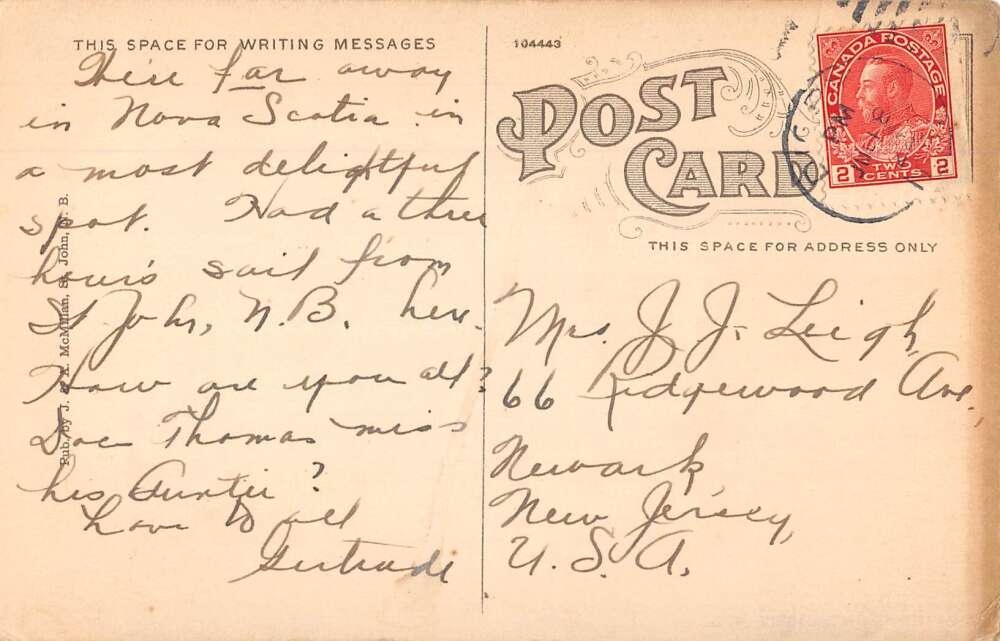 THIS SPACE FOR WRITING MESSAGES
Here far away
in Nova Scotia in
a most delightful
spot. Had a three
hours sail from
St John, N.B. here.
How are you all?
Does Thomas miss
his Auntie?
Love to all
Gertrude
Pub. by J. & A. McMillan, St. John, N. B.
104443
POST CARD
THIS SPACE FOR ADDRESS ONLY
CANADA POSTAGE
2 TWO CENTS 2
PM
Mrs. J. J. Leigh,
66 Ridgewood Ave,
Newark
New Jersey,
U.S.A.